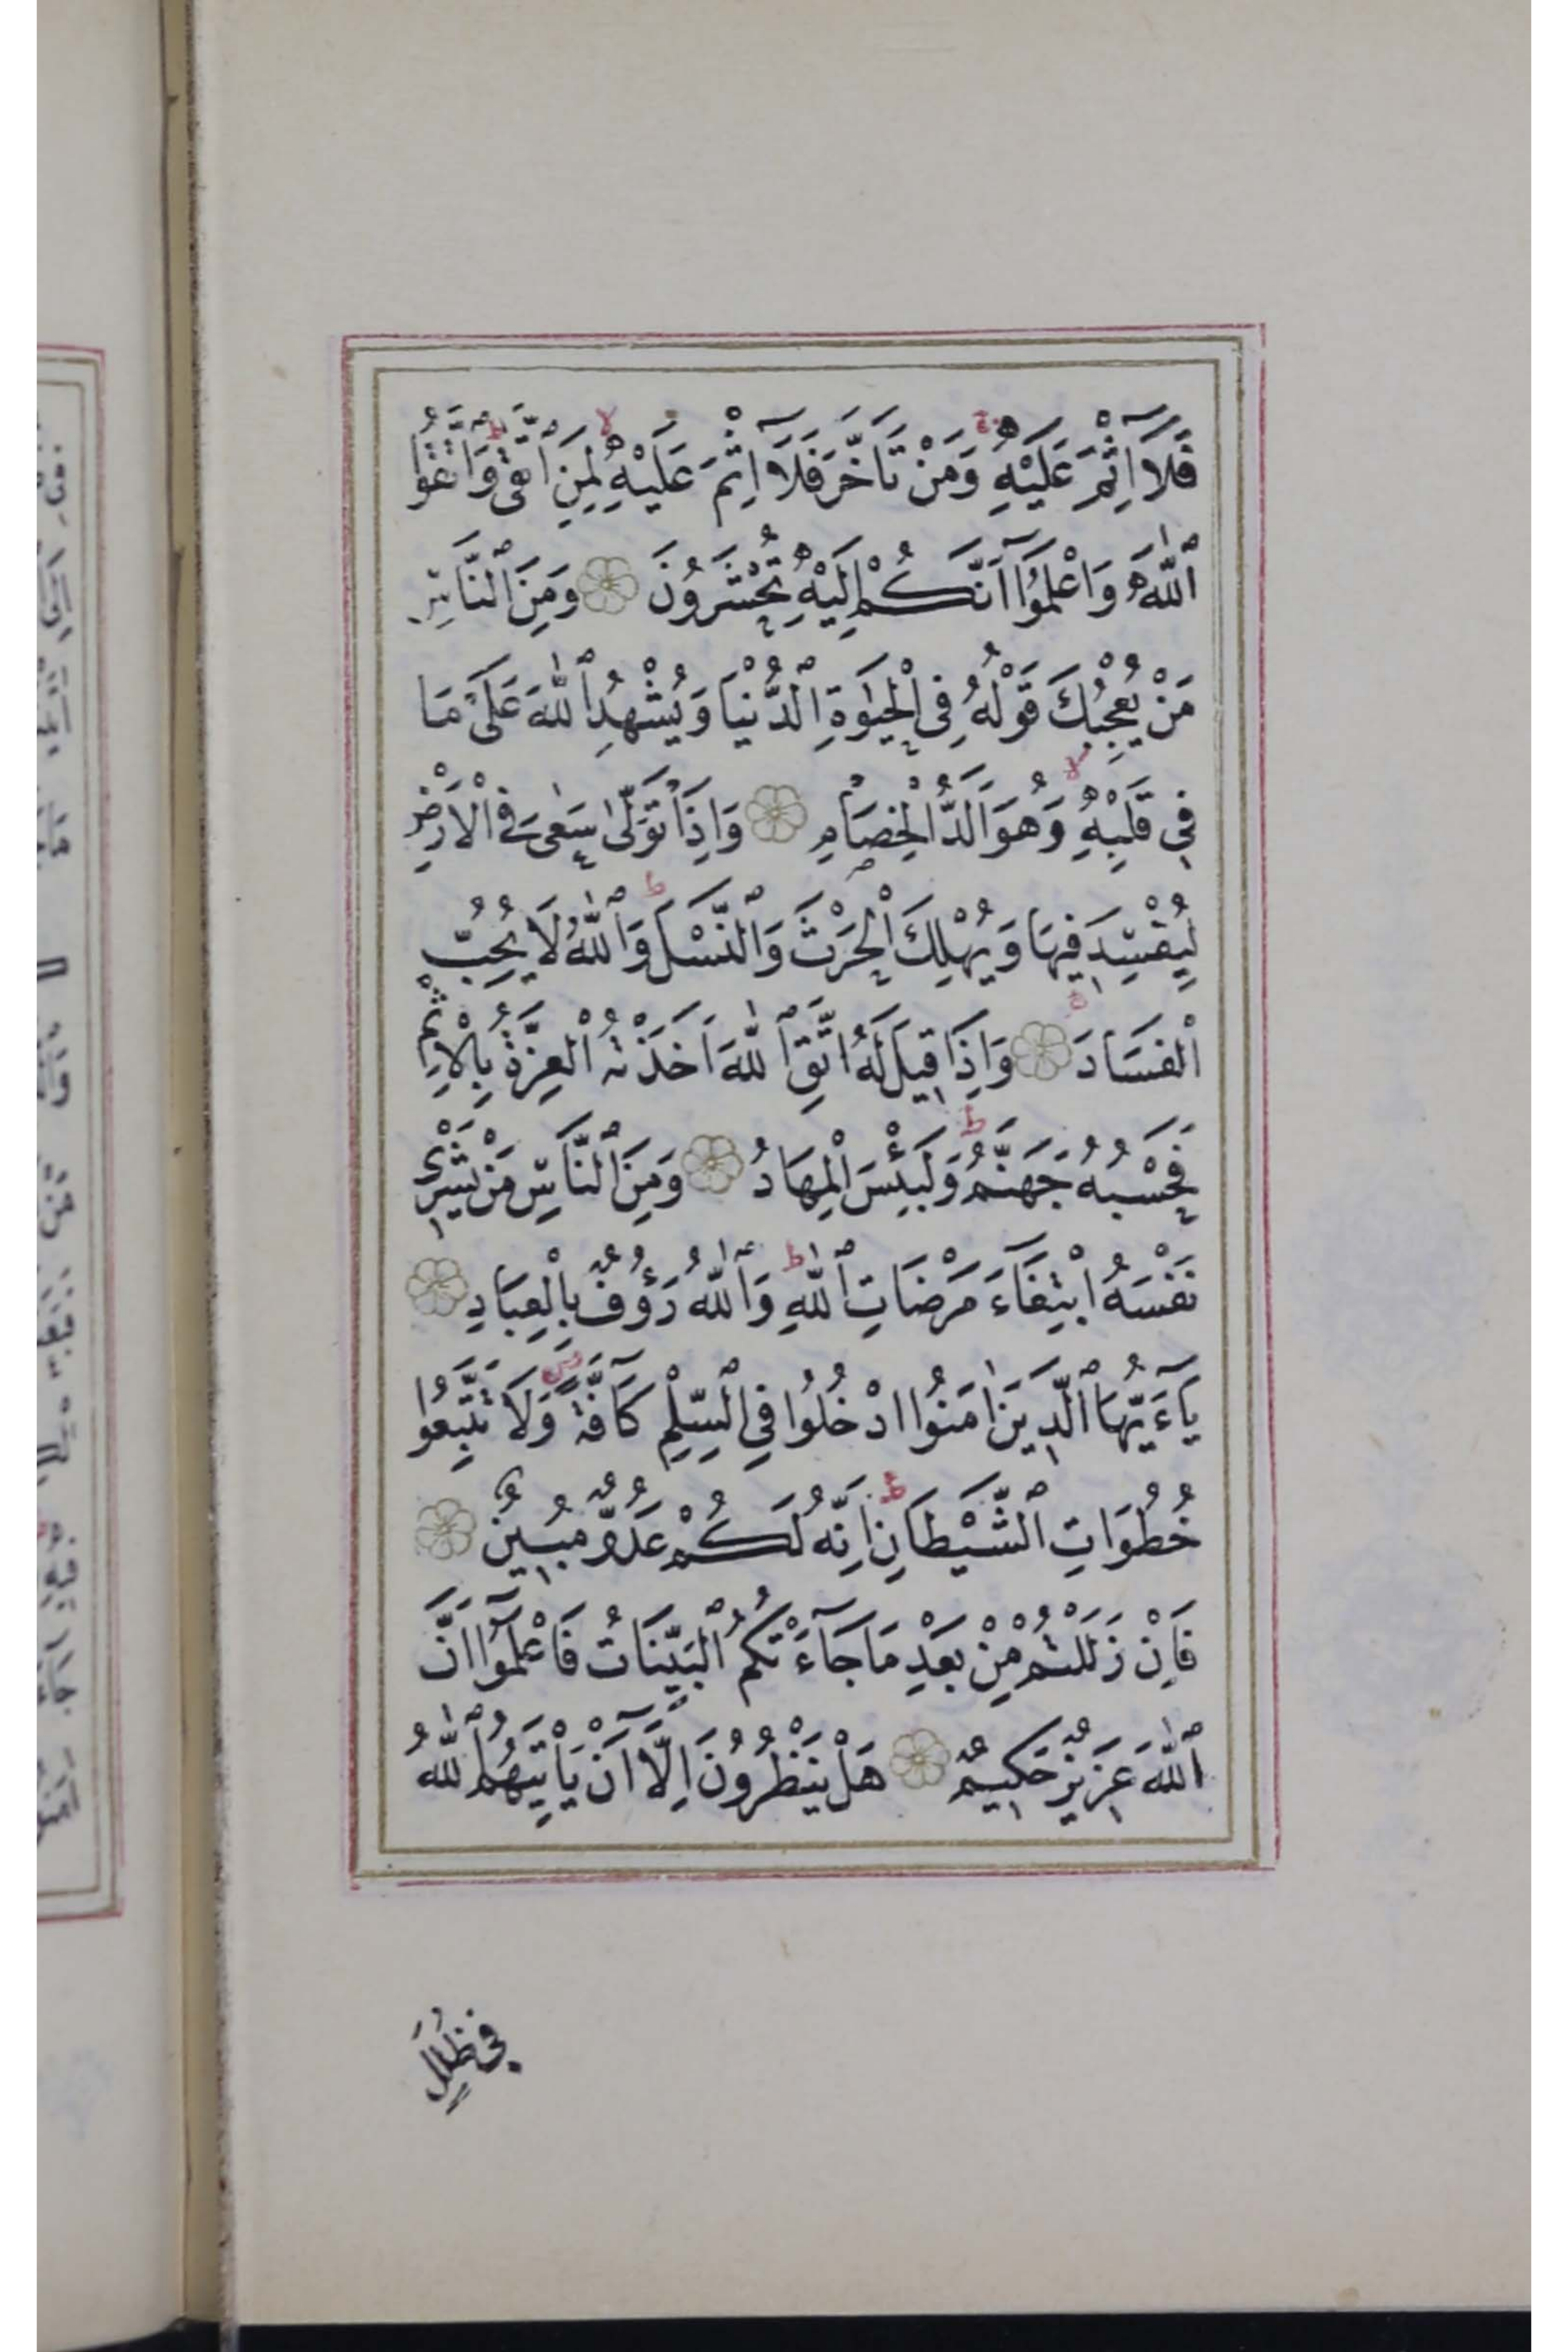 فَلَآ اِثْمَ عَلَيْهِ وَمَنْ تَاَخَّرَ فَلَآ اِثْمَ عَلَيْهِ لِمَنِ اتَّقٰى وَاتَّقُوا
اللّٰهَ وَاعْلَمُوٓا اَنَّكُمْ اِلَيْهِ تُحْشَرُونَ وَمِنَ النَّاسِ
مَنْ يُعْجِبُكَ قَوْلُهُ فِى الْحَيٰوةِ الدُّنْيَا وَيُشْهِدُ اللّٰهَ عَلٰى مَا
فِى قَلْبِهِ وَهُوَ اَلَدُّ الْخِصَامِ وَاِذَا تَوَلّٰى سَعٰى فِى الْاَرْضِ
لِيُفْسِدَ فِيهَا وَيُهْلِكَ الْحَرْثَ وَالنَّسْلَ وَاللّٰهُ لَا يُحِبُّ
الْفَسَادَ وَاِذَا قِيلَ لَهُ اتَّقِ اللّٰهَ اَخَذَتْهُ الْعِزَّةُ بِالْاِثْمِ
فَحَسْبُهُ جَهَنَّمُ وَلَبِئْسَ الْمِهَادُ وَمِنَ النَّاسِ مَنْ يَشْرِى
نَفْسَهُ ابْتِغَآءَ مَرْضَاتِ اللّٰهِ وَاللّٰهُ رَؤُفٌ بِالْعِبَادِ
يَآءَيُّهَا الَّذِينَ اٰمَنُوا ادْخُلُوا فِى السِّلْمِ كَآفَّةً وَلَا تَتَّبِعُوا
خُطُوَاتِ الشَّيْطَانِ اِنَّهُ لَكُمْ عَدُوٌّ مُبِينٌ
فَاِنْ زَلَلْتُمْ مِنْ بَعْدِ مَا جَآءَتْكُمُ الْبَيِّنَاتُ فَاعْلَمُوٓا اَنَّ
اللّٰهَ عَزِيزٌ حَكِيمٌ هَلْ يَنْظُرُونَ اِلَّآ اَنْ يَاْتِيَهُمُ اللّٰهُ
فِى ظُلَلٍ